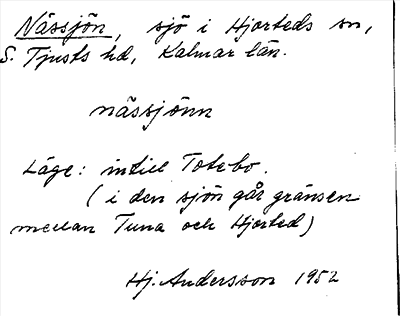 Nässjön, sjö i Hjorteds sn,
S. Tjusts hd, Kalmar län.
nässjönn
Läge: intill Totebo.
(i den sjön går gränsen
mellan Tuna och Hjorted)
Hj. Andersson 1952